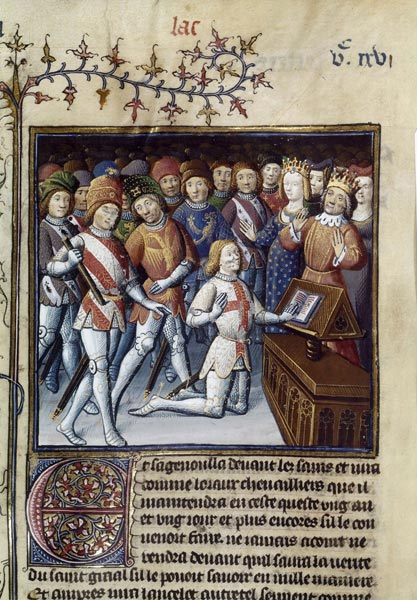 lac
v.c xxvi
Et sagenoulla devant les sains et iura
comme loiaux chevailliers que il
maintendra en ceste queste ung an
et ung iour et plus encores si le cou
venoit faire. ne iamais a court ne
vendra devant quil saura la verite
du saint graal sil le povoit savoir en nulle maniere.
Et aumpres iura lancelot autretel serment comme